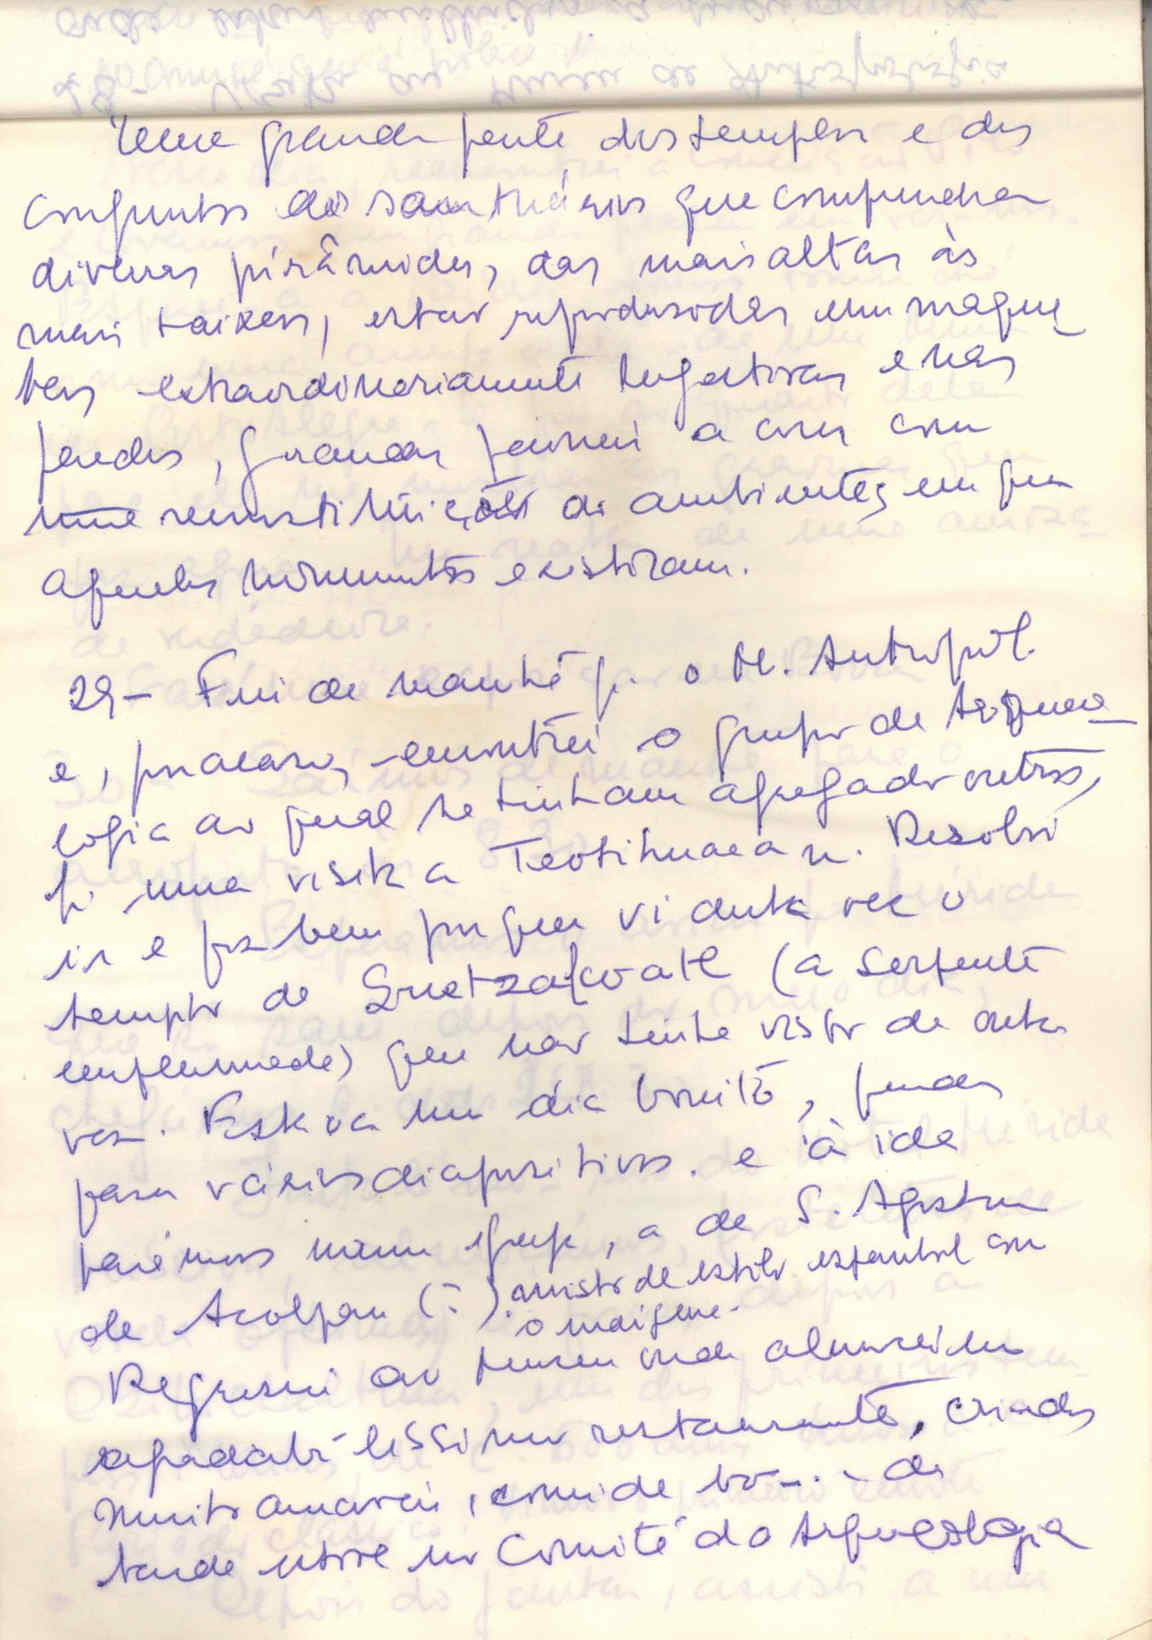 Uma grande parte dos templos e dos
conjuntos de santuários que compreendem
diversas pirâmides, das mais altas às
mais baixas, estão reproduzidas em maque
tes extraordinariamente sugestivas e nas
paredes, grandes painéis a cores com
uma reconstituições de ambientes em que
aqueles monumentos existiram.
29- Fui de manhã p. o M. Antropol.
e, por acaso, encontrei o grupo de Arqueo
logia ao qual se tinham agregado outros,
p. uma visita a Teotihuacan. Resolvi
ir e fiz bem porque vi desta vez o
templo de Quetzalcoatl (a serpente
emplumada) que não tinha visto da outra
vez. Estava um dia bonito, pude
fazer vários diapositivos. e à ida
parámos numa igreja, a de S. Agostin
de Acolpan (?). misto de estilo espanhol com
o indígena.
Regressei ao Museu onde almocei no
agradabilíssimo restaurante, criados
muito amáveis, comida boa. À
tarde estive no Comité da Arqueologia